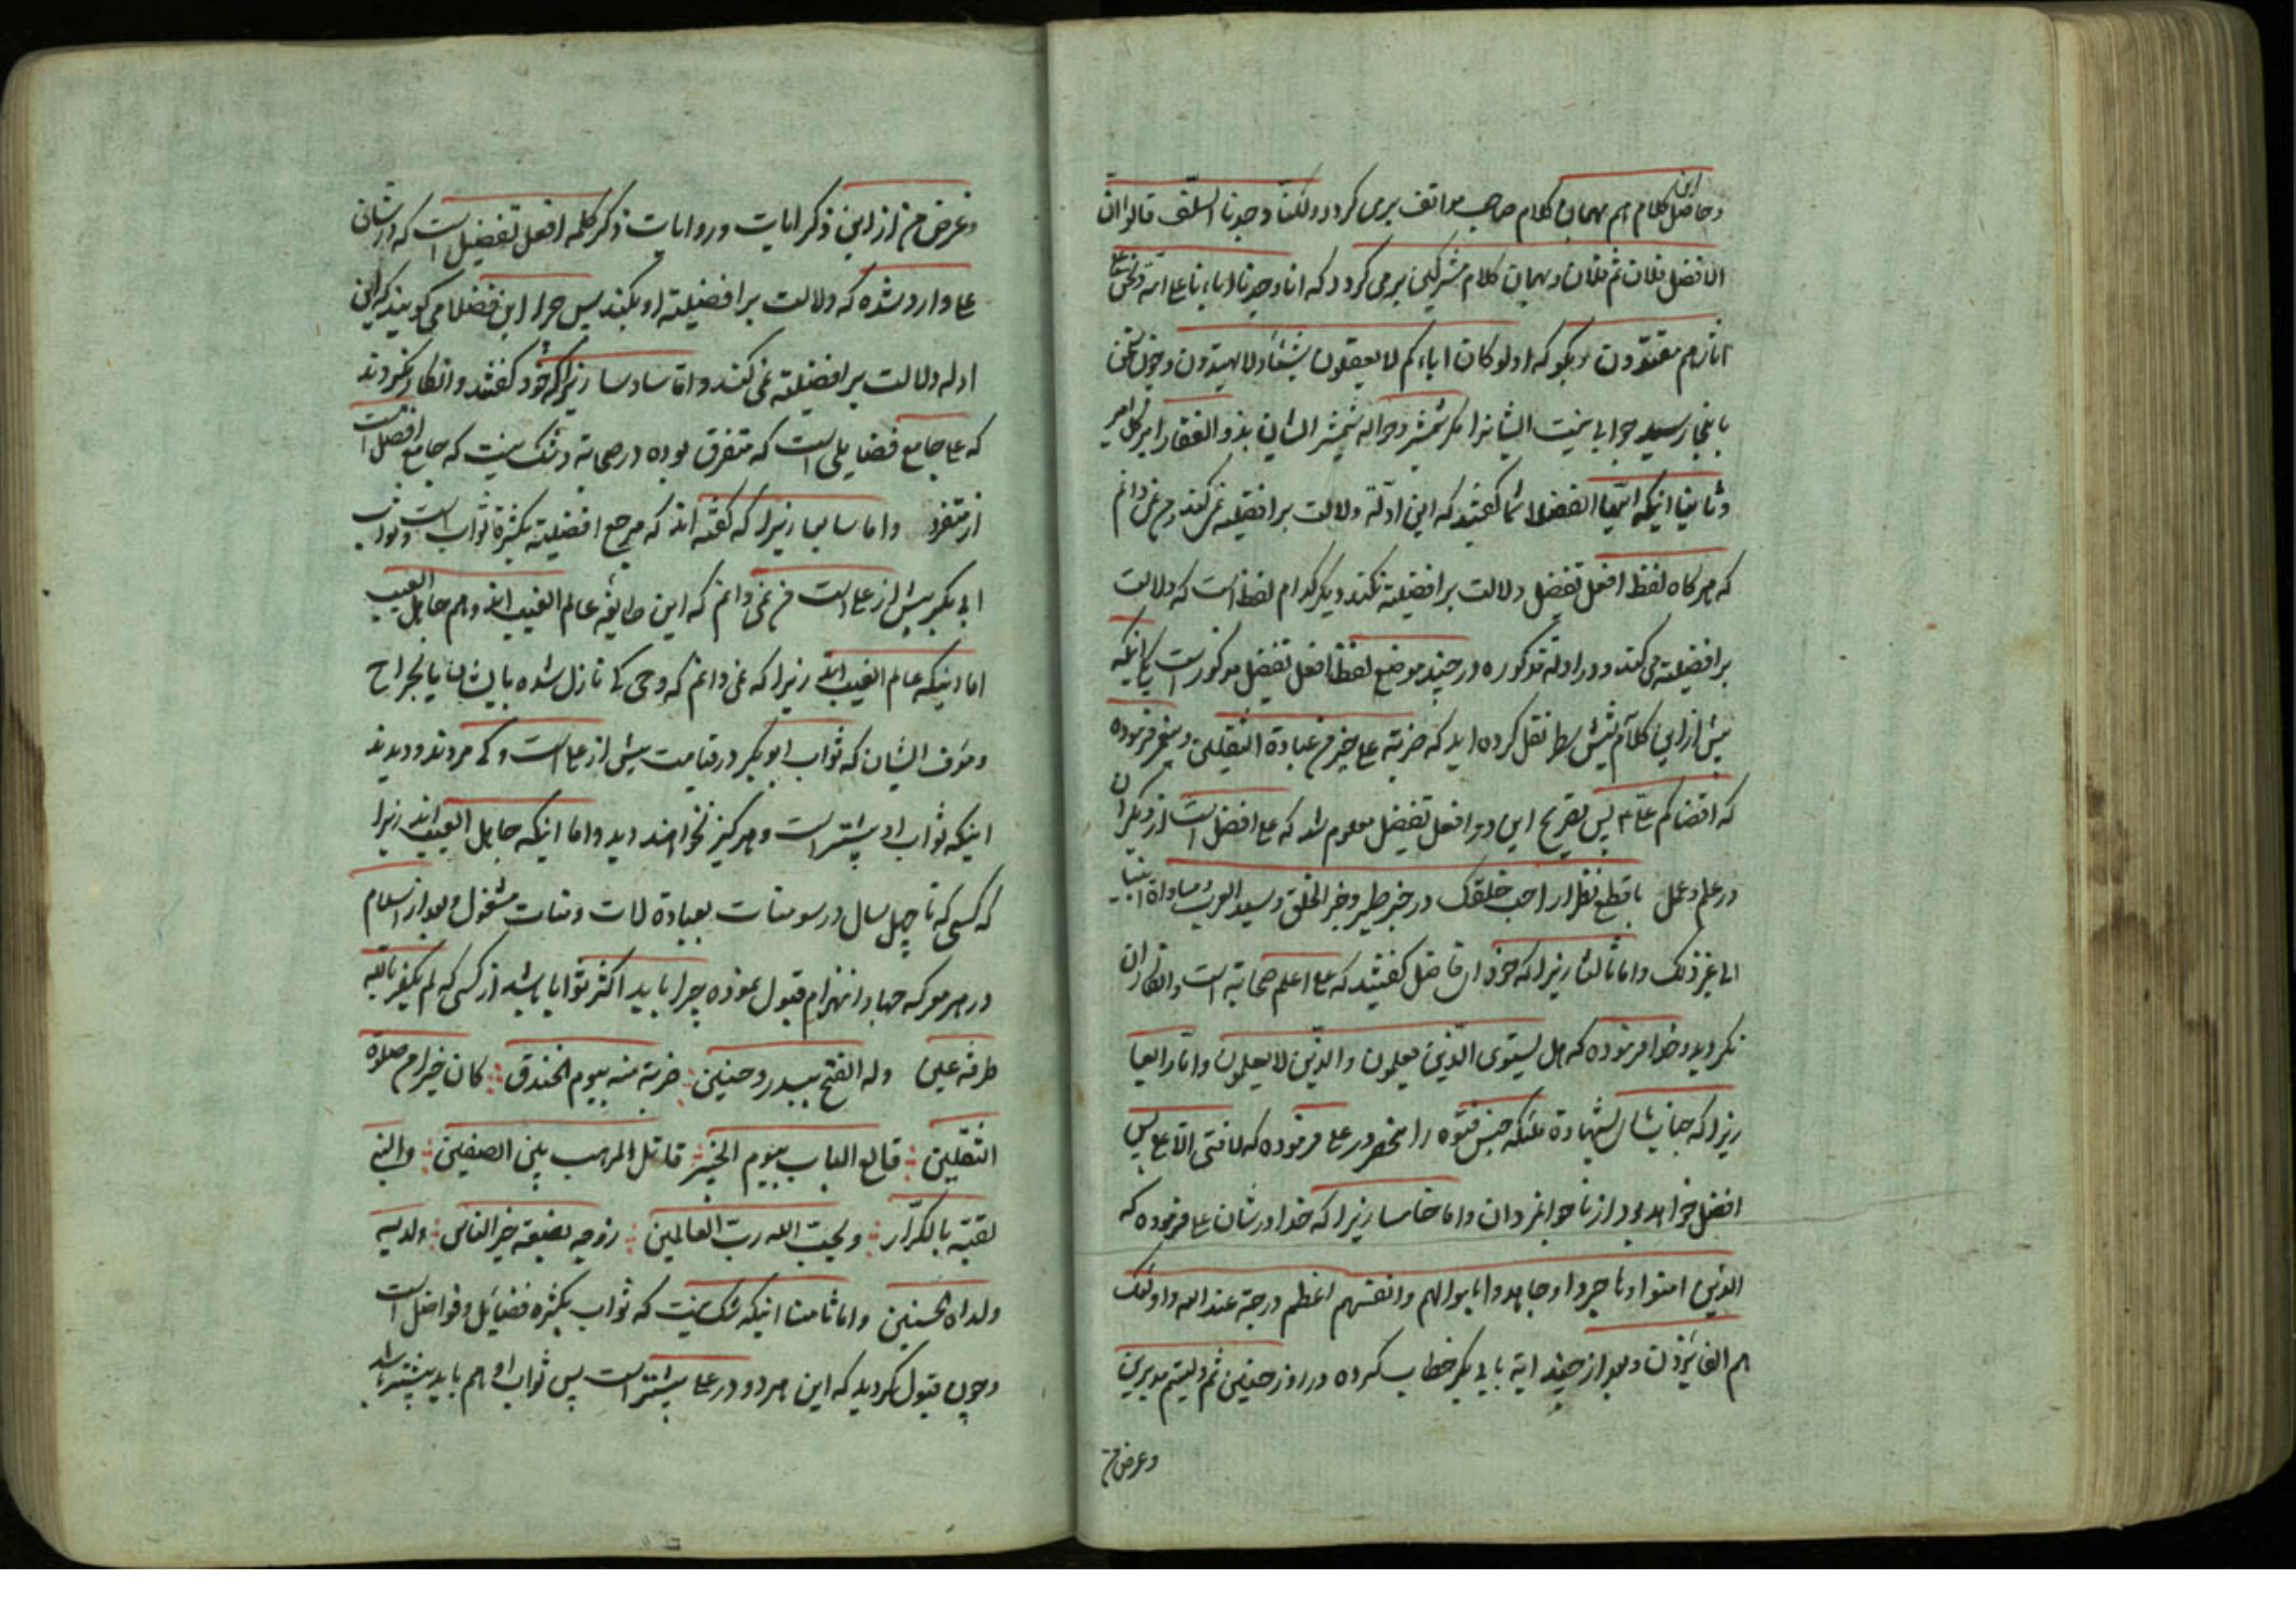 وحاصل این کلام هم بهمان کلام صاحب مواقف برمی کردد ولکنا وجدنا السلف قالوا ان
الافضل فلان ثم فلان و بهمان کلام مشرکین برمی کردد که انا وجدنا اباءنا علی امة ونحن علی
اثارهم مقتدون و بکو که اولو کان اباءکم لا یعقلون شیئا ولا یهتدون و چون سخن
باینجا رسید جوابی نیست ایشانرا مکر شمشیر و حواله شمشیر ایشان بذو الفقار امیر کل امیر
وثانیا اینکه ایها الفضلا شما کفتید که این ادلة دلالت بر افضلیة نمی کنند و من نمی دانم
که هرکاه لفظ افعل تفضیل دلالت بر افضلیة نکند دیکر کدام لفظ است که دلالت
بر افضلیة می کند و در ادلة مذکوره در چند موضع لفظ افعل تفضیل مذکور است یکی انکه
پیش از این کلام نقل کرده اید که ضربة علی خیر من عبادة الثقلین و پیغمبر فرموده
که اقضاکم علی ع پس بصریح این دو افعل تفضیل معلوم شد که علی افضل است از دیکران
در علم و عمل با قطع نظر از احب خلقک در خبر طیر و خیر الخلق و سید العرب و مساواة انبیا
الی غیر ذلک واما ثالثا زیرا که خود ان فاضل کفتید که علی اعلم صحابة است و انکار ان
نکردید و خدا فرموده که هل یستوی الذین یعلمون والذین لا یعلمون واما رابعا
زیرا که جناب شان بشهادة ملکه جنس فتوة را منحصر در علی فرموده که لا فتی الا علی پس
افضل خواهد بود از نا جوانمردان واما خامسا زیرا که خدا در شان علی فرموده که
الذین امنوا وهاجروا وجاهدوا باموالهم وانفسهم اعظم درجة عند الله واولئک
هم الفائزون و بعد از چند ایة بابی بکر خطاب کرده در روز حنین ثم ولیتم مدبرین
وغرض من
وغرض من از این ذکر ایات وروایات ذکر کلمه افعل تفضیل است که در شان
علی وارد شده که دلالت بر افضلیته او بکند پس چرا این فضلا می کویند که این
ادله دلالت بر افضلیته نمی کنند واما سادسا زیرا که خود کفتند وانکار نکردند
که علی جامع فضایلی است که متفرق بوده در صحابة و شک نیست که جامع افضل است
از متفرد واما سابعا زیرا که کفته اند که مرجع افضلیته بکثرة ثواب است وثواب
ابی بکر بیش از علی است من نمی دانم که این طایفه عالم الغیب اند وهم جاهل الغیب
اما اینکه عالم الغیب اند زیرا که نمی دانم که وحی کی نازل شده بایشان یا بجراح
ومؤلف ایشان که ثواب ابو بکر در قیامت بیش از علی است و کی مردند و دیدند
اینکه ثواب او بیشتر است و هرکیز نخواهند دید واما اینکه جاهل الغیب اند زیرا
که کسی که تا چهل سال در سومنات بعبادة لات ومنات مشغول و بعد از اسلام
در هر معرکه جهاد انهزام قبول نموده چرا باید اکثر ثوابا باشد از کسی که لم یکفر بالله
طرفة عین وله الفتح ببدر وحنین ضربة منه بیوم الخندق کان خیرا من صلوة
الثقلین قالع الباب بیوم الخیبر قاتل المرحب بین الصفین والنبی
لقبه بالکرار ویحب الله رب العالمین زوجه بضعة خیر الناس ولدیه
ولداه الحسنین واما ثامنا اینکه شک نیست که ثواب بکثرة فضایل وفواضل است
وچون قبول کردید که این هر دو در علی بیشتر است پس ثواب او هم باید بیشتر باشد